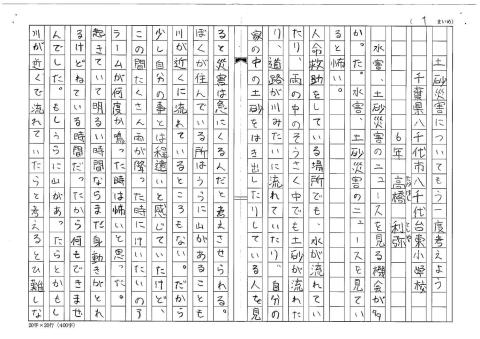 ( 1 まいめ)
土砂災害についてもう一度考えよう
千葉県八千代市八千代台東小学校
6年 高橋 利弥
水害、土砂災害のニュースを見る機会が多
かった。水害、土砂災害のニュースを見てい
ると怖い。
人命救助をしている場所でも、水が流れてい
たり、雨の中のそうさく中でも土砂が流れた
り、道路が川みたいに流れていたり、自分の
家の中の土砂をはき出したりしている人を見
ると災害は急にくるんだと考えさせられる。
ぼくが住んでいる所はうらに山があることも
川が近くに流れているところもない。だから
少し自分の事とは程遠いと感じていたけど、
この間たくさん雨が降った時にけいたいのア
ラームが何度か鳴った時は怖いと思った。
起きていて明るい時間ならまだ身動きがとれ
るけどねている時間だったら何もできませ
んでした。もしうらに山があったらとかもし
川が近くで流れていたらと考えるとひ難しな
20字×20行 (400字)